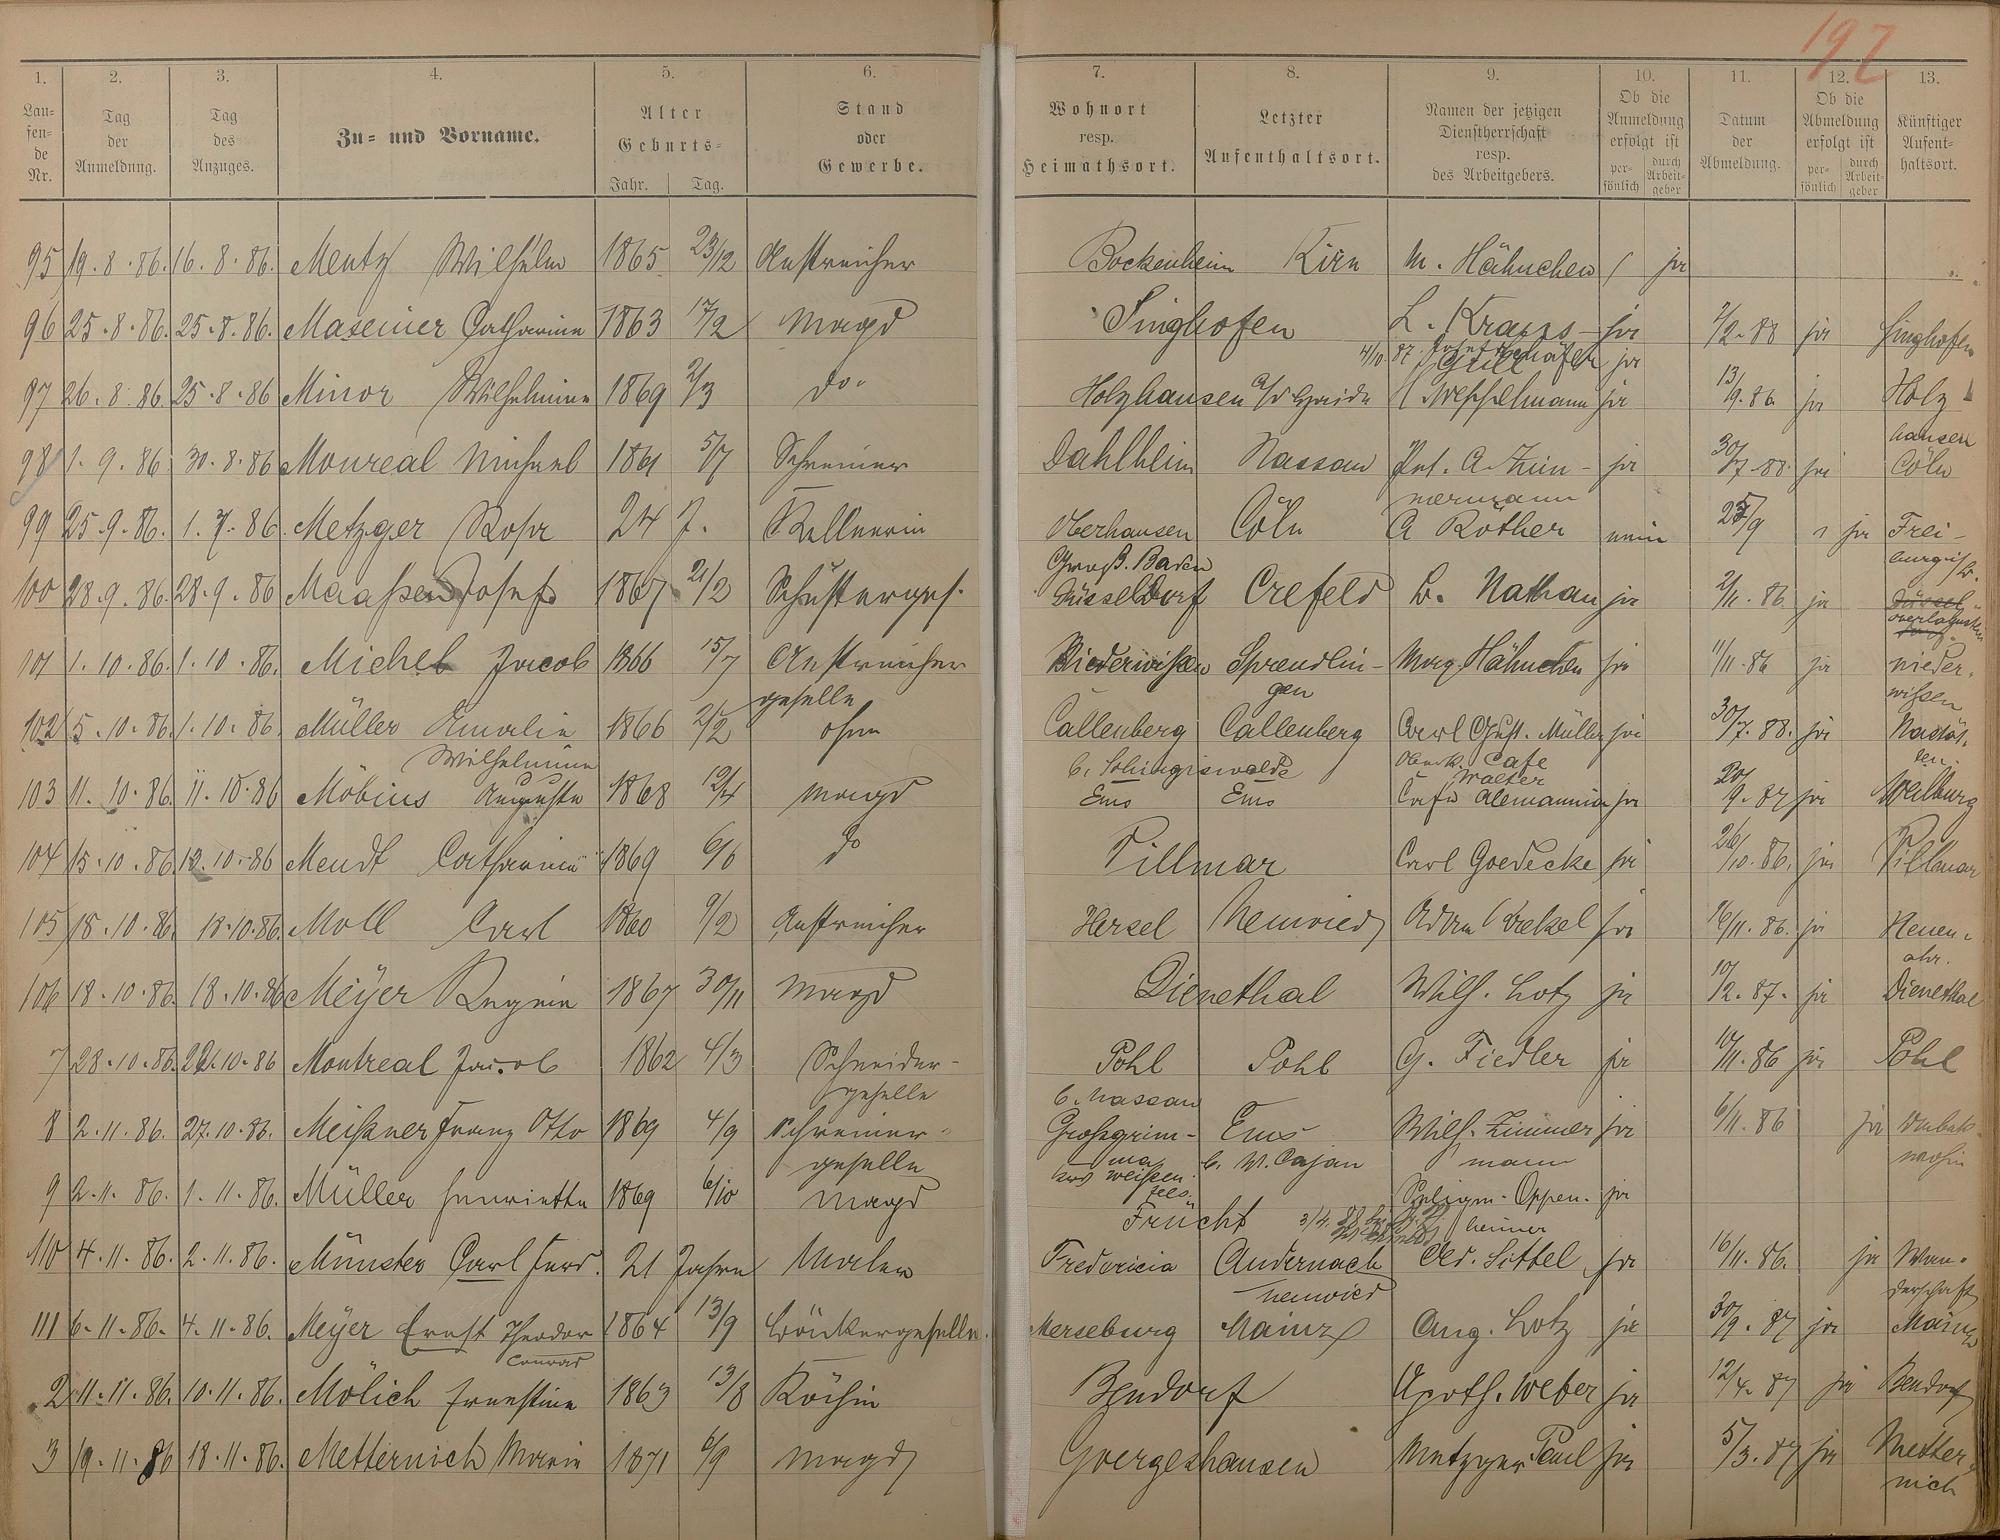 197
1. 2. 3. 4. 5. 6. 7. 8. 9. 10. 11. 12. 13.
Laufende Nr. Tag der Anmeldung. Tag des Anzuges. Zu- und Vorname. Alter Geburts- Jahr. Tag. Stand oder Gewerbe. Wohnort resp. Heimathsort. Letzter Aufenthaltsort. Namen der jetzigen Dienstherrschaft resp. des Arbeitgebers. Ob die Anmeldung erfolgt ist persönlich durch Arbeitgeber Datum der Abmeldung. Ob die Abmeldung erfolgt ist persönlich durch Arbeitgeber Künftiger Aufenthaltsort.
95 19.8.86. 16.8.86. Mentz Wilhelm 1865 23/12 Anstreicher Bockenheim Kirn M. Hähnchen / ja
96 25.8.86. 25.8.86. Maseiner Catharine 1863 17/2 Magd Singhofen L. Krapps ja 2/2.88 ja Singhofen
4/10 87 Schäfer ja
97 26.8.86. 25.8.86 Minor Wilhelmine 1869 2/3 do. Holzhausen a/d Haide Weppelmann ja 13/9.86 ja Holz
hausen
98 1.9.86 30.8.86 Monreal Michael 1861 5/7 Schreiner Dahlheim Nassau Pet. A. Zim- ja 30/7.88. ja Cöln
mermann
99 25.9.86. 1.7.86. Metzger Rosa 24 J. Kellnerin Oberhausen Cöln A Röther nein 25/9 ja Frei-
Groß. Baden burg
100 28.9.86. 28.9.86 Maaßen Josef 1867 21/2 Schusterges. Düsseldorf Crefeld L. Nathan ja 2/11.86. ja Düssel
dorf
101 1.10.86. 1.10.86. Michel Jacob 1866 15/7 Anstreicher Niederwißen Sprendlin- Marg. Hähnchen ja 11/11.86 ja nieder-
geselle gen wissen
102 5.10.86. 1.10.86. Müller Amalie 1866 2/2 ohne Callenberg Callenberg Carl Gust. Müller ja 30/7.88. ja Nastät-
Wilhelmine Cafe ten.
Walter
103 11.10.86. 11.10.86 Möbius Auguste 1868 12/4 Magd Ems Ems Cafe Alemannia ja 20/9.87 ja Weilburg
104 15.10.86. 13.10.86 Mendt Catharine 1869 6/6 do Villmar Carl Goedecke ja 26/10.86. ja Villmar
105 18.10.86. 18.10.86. Moll Carl 1860 9/2 Anstreicher Hersel Neuwied Adam ja 16/11.86. ja Neuen-
ahr.
106 18.10.86. 18.10.86 Meÿer Regine 1867 30/11 Magd Dienethal Wilh. Lotz ja 10/2.87. ja Dienethal
7 28.10.86. 22.10.86 Montreal Jacob 1862 4/3 Schneider- Pohl Pohl G. Fiedler ja 10/11.86 ja Pohl
geselle b. Nassau
8 2.11.86. 27.10.86. Meißner Franz Otto 1869 4/9 Schreiner- Großgrim- Ems Wilh. Zimmer ja 6/11.86 ja Unbek.
geselle ma b. W. Cajan mann wohin
Weißen-
fels.
9 2.11.86. 1.11.86. Müller Henriette 1869 6/10 Magd Frücht Seligm. Oppen- ja
heimer
110 4.11.86. 2.11.86. Münster Carl Ferd. 21 Jahre Maler Fredericia Andernach Ed. Sittel ja 16/11.86. ja Wan-
Neuwied derschaft
111 6.11.86. 4.11.86. Meÿer Ernst Theodor 1864 13/9 Böttchergeselle. Merseburg Mainz Aug. Lotz ja 30/9.87 ja Mainz
Conrad
2 11.11.86. 10.11.86. Mölich Ernestine 1863 13/8 Köchin Bendorf Apoth. Weber ja 12/4.87 ja Bendorf
3 19.11.86 18.11.86. Metternich Marie 1871 6/9 Magd Goergeshausen Metzger Paul ja 5/3.87 ja Metter-
nich